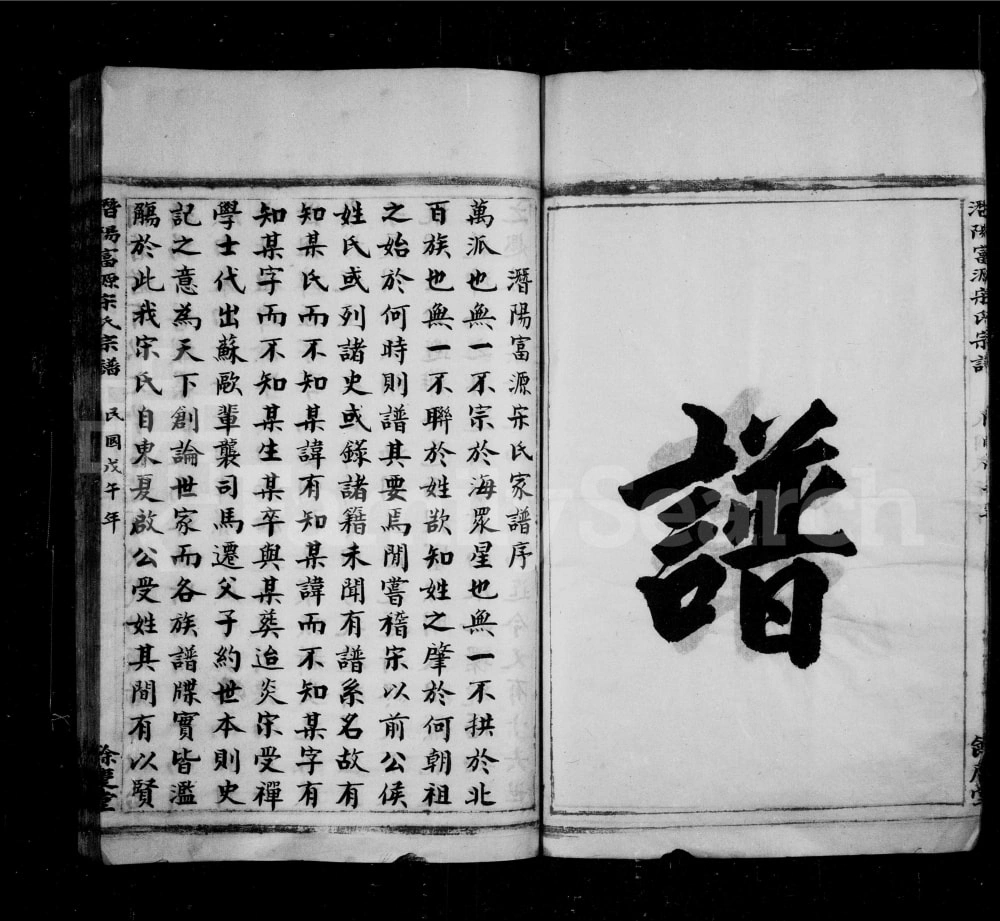 譜
潛陽富源宋氏家譜序
萬派也無一不宗於海眾星也無一不拱於北
百族也無一不聯於姓欲知姓之肇於何朝祖
之始於何時則譜其要焉閒嘗稽宋以前公侯
姓氏或列諸史或錄諸籍未聞有譜系名故有
知某氏而不知某諱有知某諱而不知某字有
知某字而不知某生某卒與某葬迨炎宋受禪
學士代出蘇歐輩襲司馬遷父子約世本則史
記之意為天下創論世家而各族譜牒實皆濫
觴於此我宋氏自東夏啟公受姓其間有以賢
潛陽富源宋氏宗譜 民國戊午年
FamilySearch